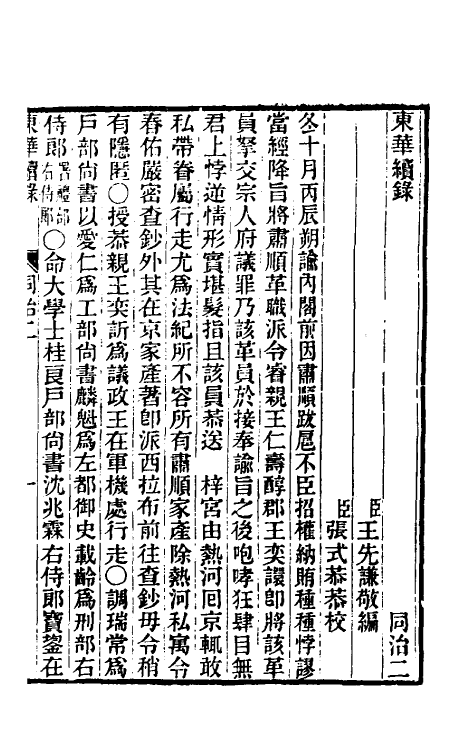 東華續錄　同治二
臣王先謙敬編
臣張式恭恭校
冬十月丙辰朔諭內閣前因肅順跋扈不臣招權納賄種種悖謬
當經降旨將肅順革職派令睿親王仁壽醇郡王奕譞卽將該革
員拏交宗人府議罪乃該革員於接奉諭旨之後咆哮狂肆目無
君上悖逆情形實堪髮指且該員恭送　梓宮由熱河回京輒敢
私帶眷屬行走尤爲法紀所不容所有肅順家產除熱河私寓令
春佑嚴密查鈔外其在京家產著卽派西拉布前往查鈔毋令稍
有隱匿〇授恭親王奕訢爲議政王在軍機處行走〇調瑞常爲
戶部尚書以愛仁爲工部尚書麟魁爲左都御史載齡爲刑部右
侍郎署禮部右侍郎〇命大學士桂良戶部尚書沈兆霖右侍郎寶鋆在
東華續錄　同治二　一